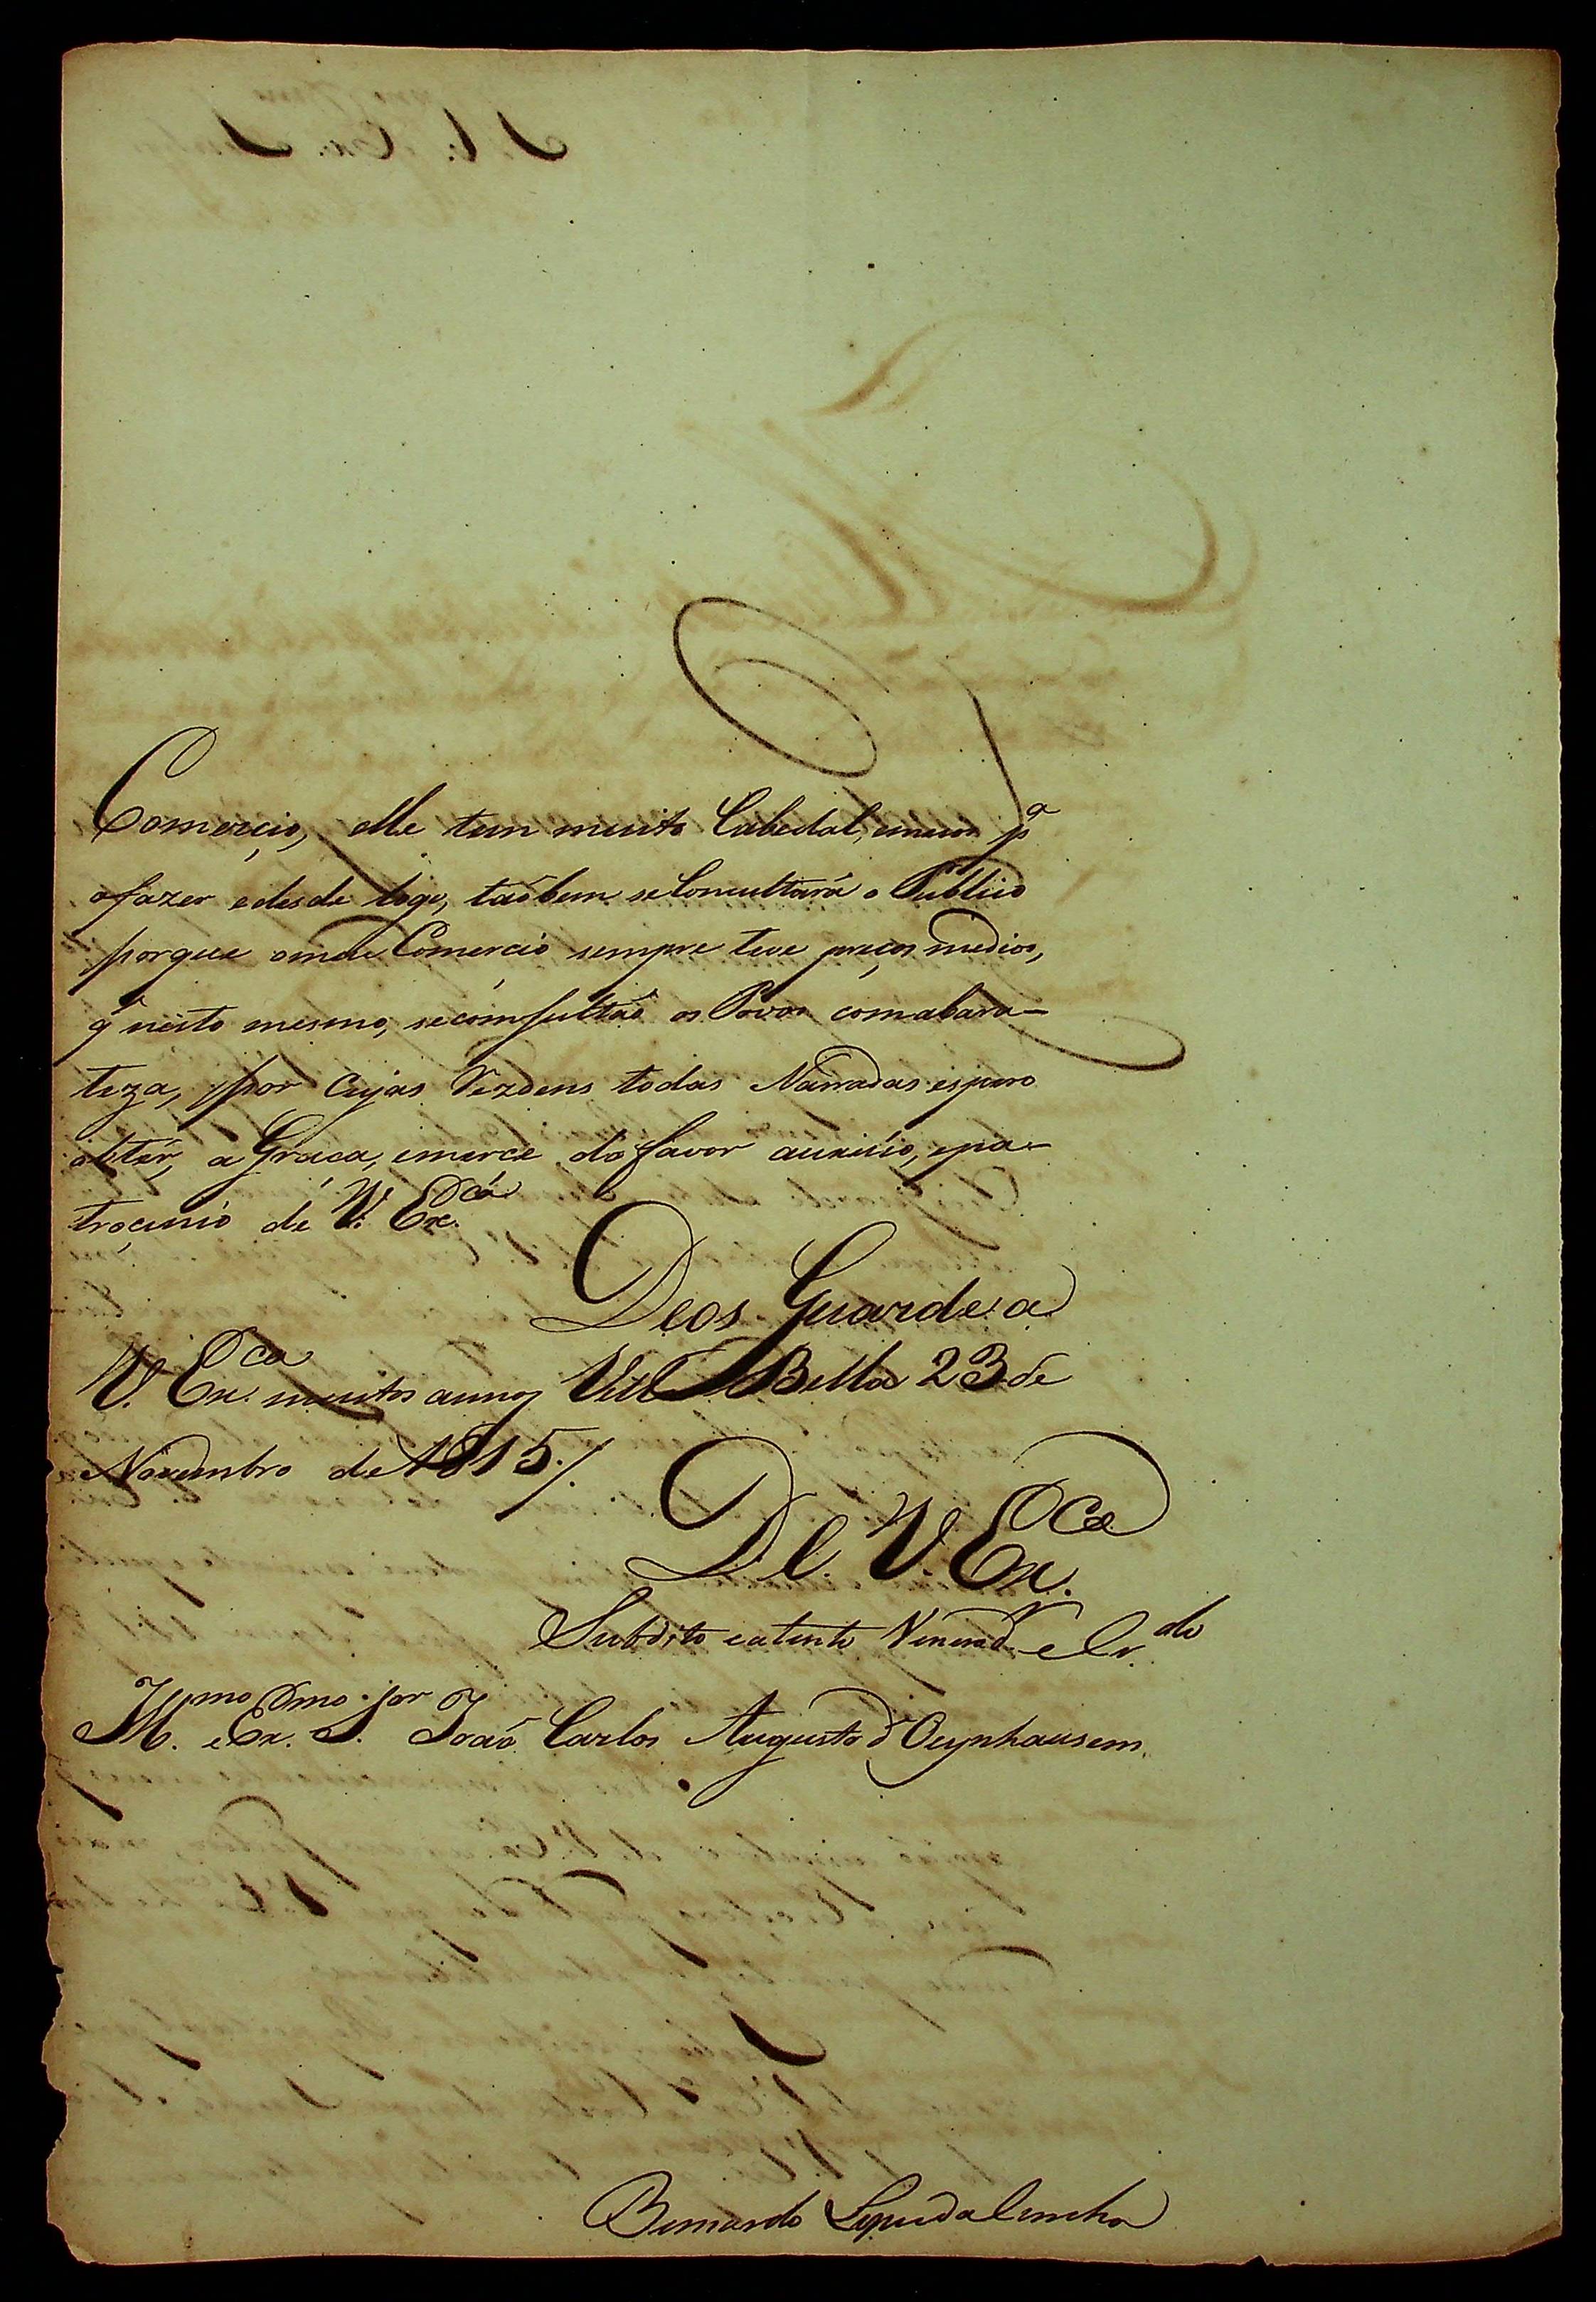 Comercio, elle tem muito Cabedal, emeios p.ª
ofazer edesde logo, taõbem seConsultará o Publico
porque omeu Comercio sempre teve preços medios,
q̃ nisto mesmo, seconsultaõ os Povos comabara-
teza, por Cujas Rezoens todas Narradas espero
obter, a Graca, emerce do favor auxilio, epa-
trocinio de V. Ex.ca
Deos Guarde a
V. Ex.ca muitos annos Villa Bella 23 de
Novembro de 1815./.
De V. Ex.ca
Subdito eatento Venerad.r e Cr.do
Ill.mo eEx.mo S.or Joaõ Carlos Augusto d'Oeynhausem
Bernardo Lopes da Cunha